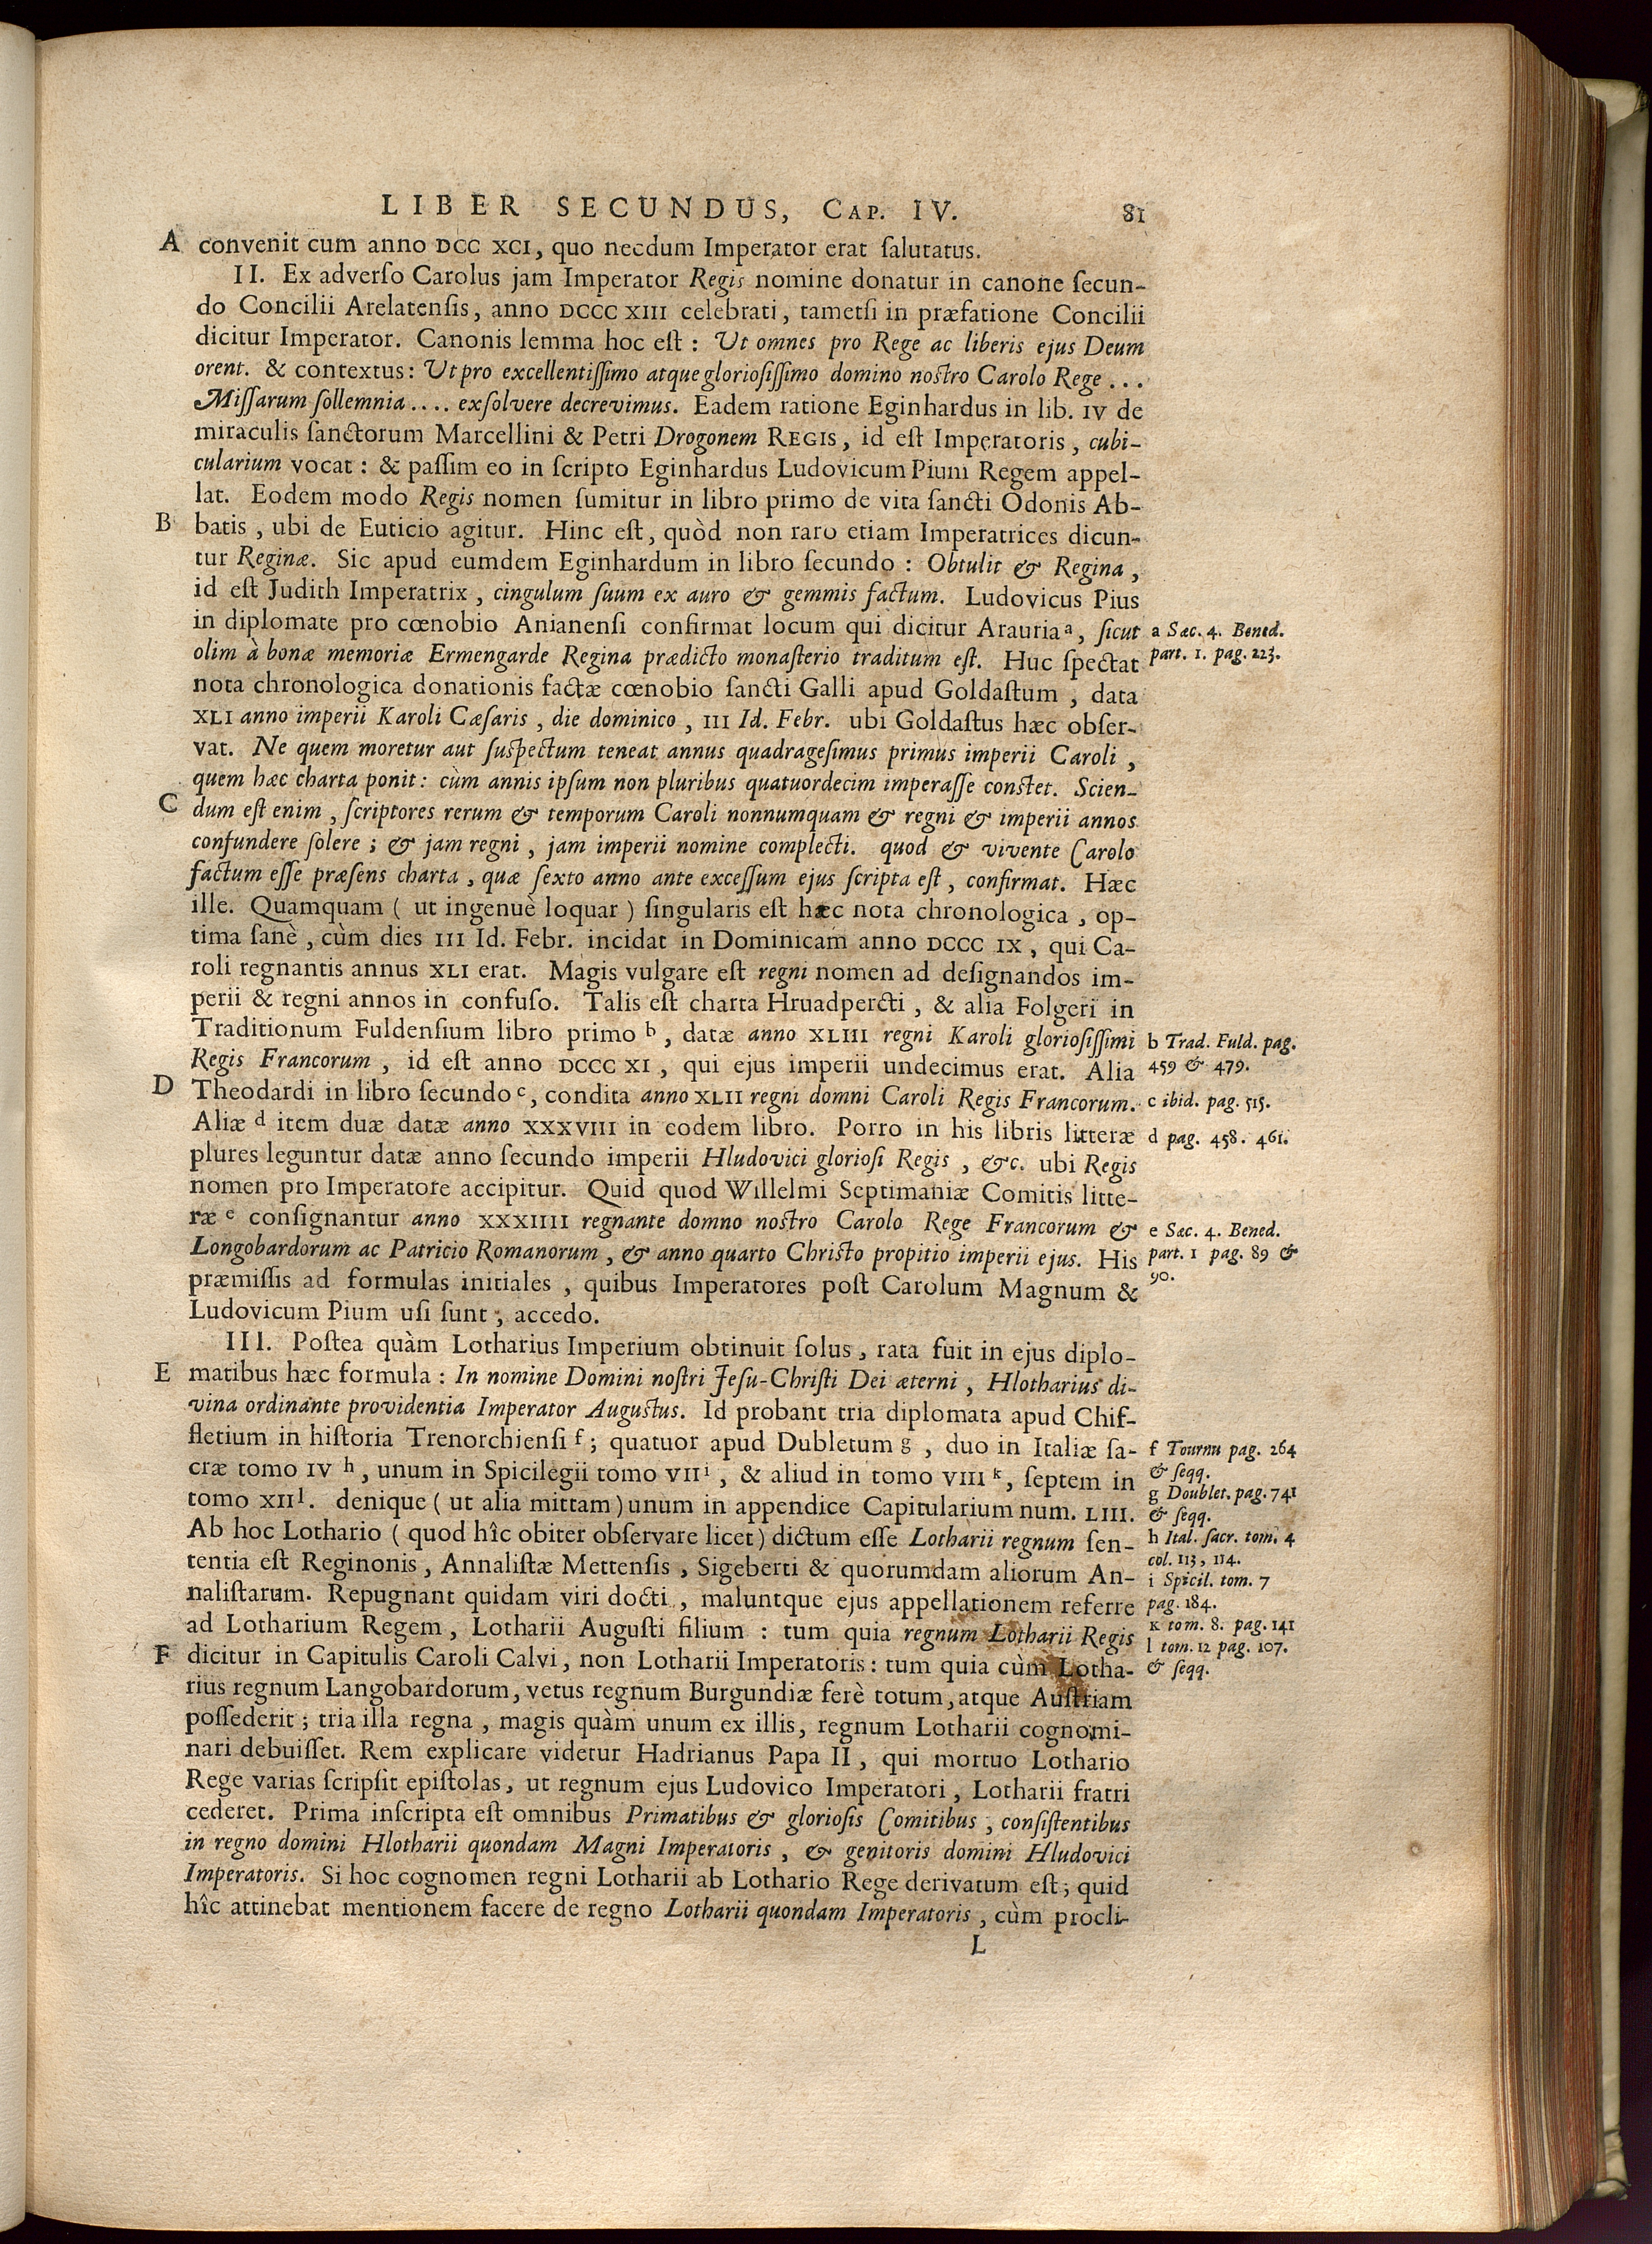 LIBER SECUNDUS, CAP. IV. 81
A convenit cum anno DCC XCI, quo necdum Imperator erat ſalutatus.
II. Ex adverſo Carolus jam Imperator Regis nomine donatur in canone ſecun-
do Concilii Arelatenſis, anno DCCC XIII celebrati, tametſi in præfatione Concilii
dicitur Imperator. Canonis lemma hoc eſt : Ut omnes pro Rege ac liberis ejus Deum
orent. & contextus: Ut pro excellentiſſimo atque glorioſiſſimo domino noſtro Carolo Rege ...
Miſſarum ſollemnia .... exſolvere decrevimus. Eadem ratione Eginhardus in lib. IV de
miraculis ſanctorum Marcellini & Petri Drogonem REGIS, id eſt Imperatoris, cubi-
cularium vocat : & paſſim eo in ſcripto Eginhardus Ludovicum Pium Regem appel-
lat. Eodem modo Regis nomen ſumitur in libro primo de vita ſancti Odonis Ab-
B batis, ubi de Euticio agitur. Hinc eſt, quòd non raro etiam Imperatrices dicun-
tur Reginæ. Sic apud eumdem Eginhardum in libro ſecundo : Obtulit & Regina,
id eſt Judith Imperatrix, cingulum ſuum ex auro & gemmis factum. Ludovicus Pius
in diplomate pro cœnobio Anianenſi confirmat locum qui dicitur Arauria a, ſicut
a Sæc. 4. Bened.
olim à bonæ memoriæ Ermengarde Regina prædicto monaſterio traditum eſt. Huc ſpectat
part. 1. pag. 223.
nota chronologica donationis factæ cœnobio ſancti Galli apud Goldaſtum, data
XLI anno imperii Karoli Cæſaris, die dominico, III Id. Febr. ubi Goldaſtus hæc obſer-
vat. Ne quem moretur aut ſuſpectum teneat annus quadrageſimus primus imperii Caroli,
quem hæc charta ponit: cùm annis ipſum non pluribus quatuordecim imperaſſe conſtet. Scien-
C dum eſt enim, ſcriptores rerum & temporum Caroli nonnumquam & regni & imperii annos
confundere ſolere ; & jam regni, jam imperii nomine complecti. quod & vivente Carolo
factum eſſe præſens charta, quæ ſexto anno ante exceſſum ejus ſcripta eſt, confirmat. Hæc
ille. Quamquam ( ut ingenuè loquar ) ſingularis eſt hæc nota chronologica, op-
tima ſanè, cùm dies III Id. Febr. incidat in Dominicam anno DCCC IX, qui Ca-
roli regnantis annus XLI erat. Magis vulgare eſt regni nomen ad deſignandos im-
perii & regni annos in confuſo. Talis eſt charta Hruadpercti, & alia Folgeri in
Traditionum Fuldenſium libro primo b, datæ anno XLIII regni Karoli glorioſiſſimi
b Trad. Fuld. pag.
Regis Francorum, id eſt anno DCCC XI, qui ejus imperii undecimus erat. Alia
459 & 479.
D Theodardi in libro ſecundo c, condita anno XLII regni domni Caroli Regis Francorum.
c ibid. pag. 515.
Aliæ d item duæ datæ anno XXXVIII in eodem libro. Porro in his libris litteræ
d pag. 458. 461.
plures leguntur datæ anno ſecundo imperii Hludovici glorioſi Regis, &c. ubi Regis
nomen pro Imperatore accipitur. Quid quod Willelmi Septimaniæ Comitis litte-
ræ e conſignantur anno XXXIIII regnante domno noſtro Carolo Rege Francorum &
e Sæc. 4. Bened.
Longobardorum ac Patricio Romanorum, & anno quarto Chriſto propitio imperii ejus. His
part. 1 pag. 89 &
præmiſſis ad formulas initiales, quibus Imperatores poſt Carolum Magnum &
90.
Ludovicum Pium uſi ſunt, accedo.
III. Poſtea quàm Lotharius Imperium obtinuit ſolus, rata fuit in ejus diplo-
E matibus hæc formula : In nomine Domini noſtri Jeſu-Chriſti Dei æterni, Hlotharius di-
vina ordinante providentia Imperator Auguſtus. Id probant tria diplomata apud Chif-
fletium in hiſtoria Trenorchienſi f; quatuor apud Dubletum g, duo in Italiæ ſa-
f Tournu pag. 264
& ſeqq.
cræ tomo IV h, unum in Spicilegii tomo VII i, & aliud in tomo VIII k, ſeptem in
g Doublet. pag. 741
tomo XII l. denique ( ut alia mittam ) unum in appendice Capitularium num. LIII.
& ſeqq.
Ab hoc Lothario ( quod hîc obiter obſervare licet ) dictum eſſe Lotharii regnum ſen-
h Ital. ſacr. tom. 4
col. 113, 114.
tentia eſt Reginonis, Annaliſtæ Mettenſis, Sigeberti & quorumdam aliorum An-
i Spicil. tom. 7
naliſtarum. Repugnant quidam viri docti, maluntque ejus appellationem referre
pag. 184.
ad Lotharium Regem, Lotharii Auguſti filium : tum quia regnum Lotharii Regis
k tom. 8. pag. 141
l tom. 12 pag. 107.
F dicitur in Capitulis Caroli Calvi, non Lotharii Imperatoris : tum quia cùm Lotha-
& ſeqq.
rius regnum Langobardorum, vetus regnum Burgundiæ ferè totum, atque Auſtriam
poſſederit ; tria illa regna, magis quàm unum ex illis, regnum Lotharii cognomi-
nari debuiſſet. Rem explicare videtur Hadrianus Papa II, qui mortuo Lothario
Rege varias ſcripſit epiſtolas, ut regnum ejus Ludovico Imperatori, Lotharii fratri
cederet. Prima inſcripta eſt omnibus Primatibus & glorioſis Comitibus, conſiſtentibus
in regno domini Hlotharii quondam Magni Imperatoris, & genitoris domini Hludovici
Imperatoris. Si hoc cognomen regni Lotharii ab Lothario Rege derivatum eſt; quid
hîc attinebat mentionem facere de regno Lotharii quondam Imperatoris, cùm procli-
L